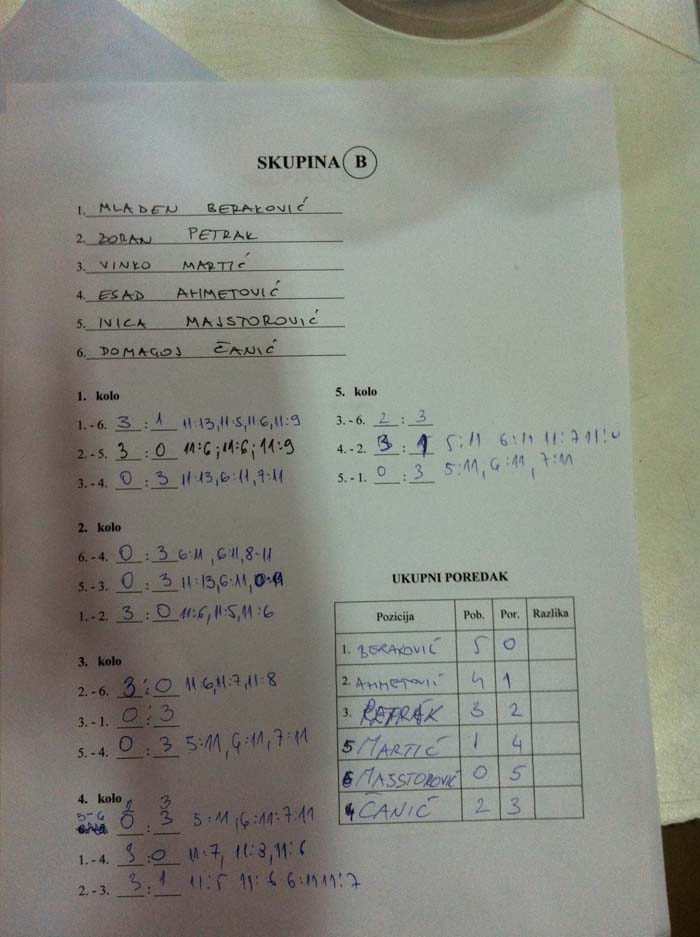 SKUPINA B
1. MLADEN BERAKOVIĆ
2. ZORAN PETRAK
3. VINKO MARTIĆ
4. ESAD AHMETOVIĆ
5. IVICA MAJSTOROVIĆ
6. DOMAGOJ ČANIĆ
1. kolo
1. - 6. 3 : 1 11:13, 11:5, 11:6, 11:9
2. - 5. 3 : 0 11:6; 11:6; 11:9
3. - 4. 0 : 3 11:13, 6:11, 7:11
2. kolo
6. - 4. 0 : 3 6:11, 6:11, 8-11
5. - 3. 0 : 3 11:13, 6:11,
1. - 2. 3 : 0 11:6, 11:5, 11:6
3. kolo
2. - 6. 3 : 0 11:6, 11:7, 11:8
3. - 1. 0 : 3
5. - 4. 0 : 3 5:11, 6:11, 7:11
4. kolo 2 3
5-6 0 : 3 5:11, 6:11: 7:11
1. - 4. 3 : 0 11:7, 11:8, 11:6
2. - 3. 3 : 1 11:5 11:6 6:11 11:7
5. kolo
3. - 6. 2 : 3
4. - 2. 3 : 1 5:11 6:11 11:7
5. - 1. 0 : 3 5:11, 6:11, 7:11
UKUPNI POREDAK
Pozicija Pob. Por. Razlika
1. BERAKOVIĆ 5 0
2. AHMETOVIĆ 4 1
3. PETRAK 3 2
5 MARTIĆ 1 4
6 MAJSTOROVIĆ 0 5
4 ČANIĆ 2 3